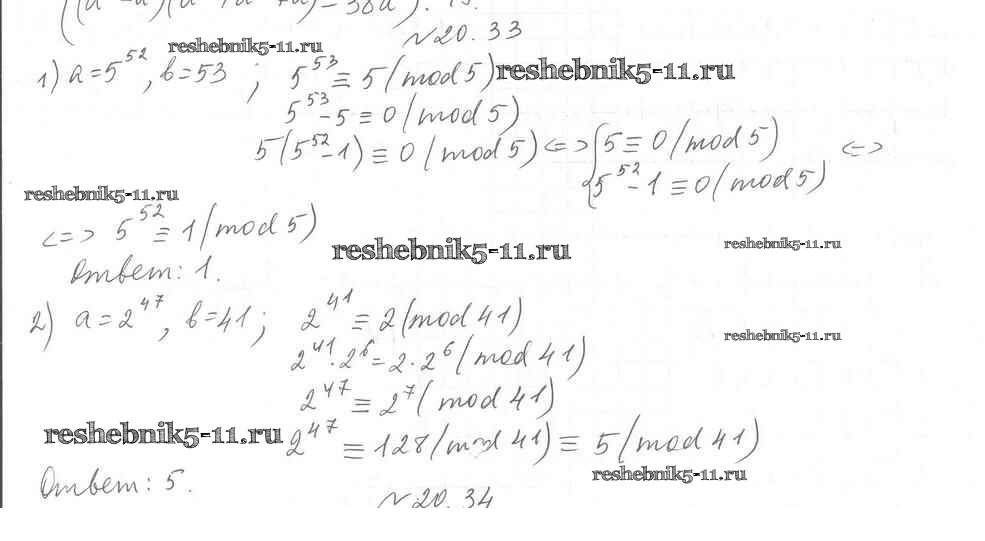 ((a -a)(a +a +a)-38a).
№20.33
reshebnik5-11.ru
1) a=5^52, b=53 ; 5^53≡5(mod 5) reshebnik5-11.ru
5^53-5≡0(mod 5)
5(5^52-1)≡0(mod 5)<=>{5≡0(mod 5) <=>
5^52-1≡0(mod 5)
reshebnik5-11.ru
<=> 5^52≡1(mod 5)
reshebnik5-11.ru
reshebnik5-11.ru
Ответ: 1.
2) a=2^47, b=41; 2^41≡2(mod 41)
reshebnik5-11.ru
2^41·2^6=2·2^6(mod 41)
2^47≡2^7(mod 41)
reshebnik5-11.ru 2^47≡128(mod 41)≡5(mod 41)
reshebnik5-11.ru
Ответ: 5.
№20.34